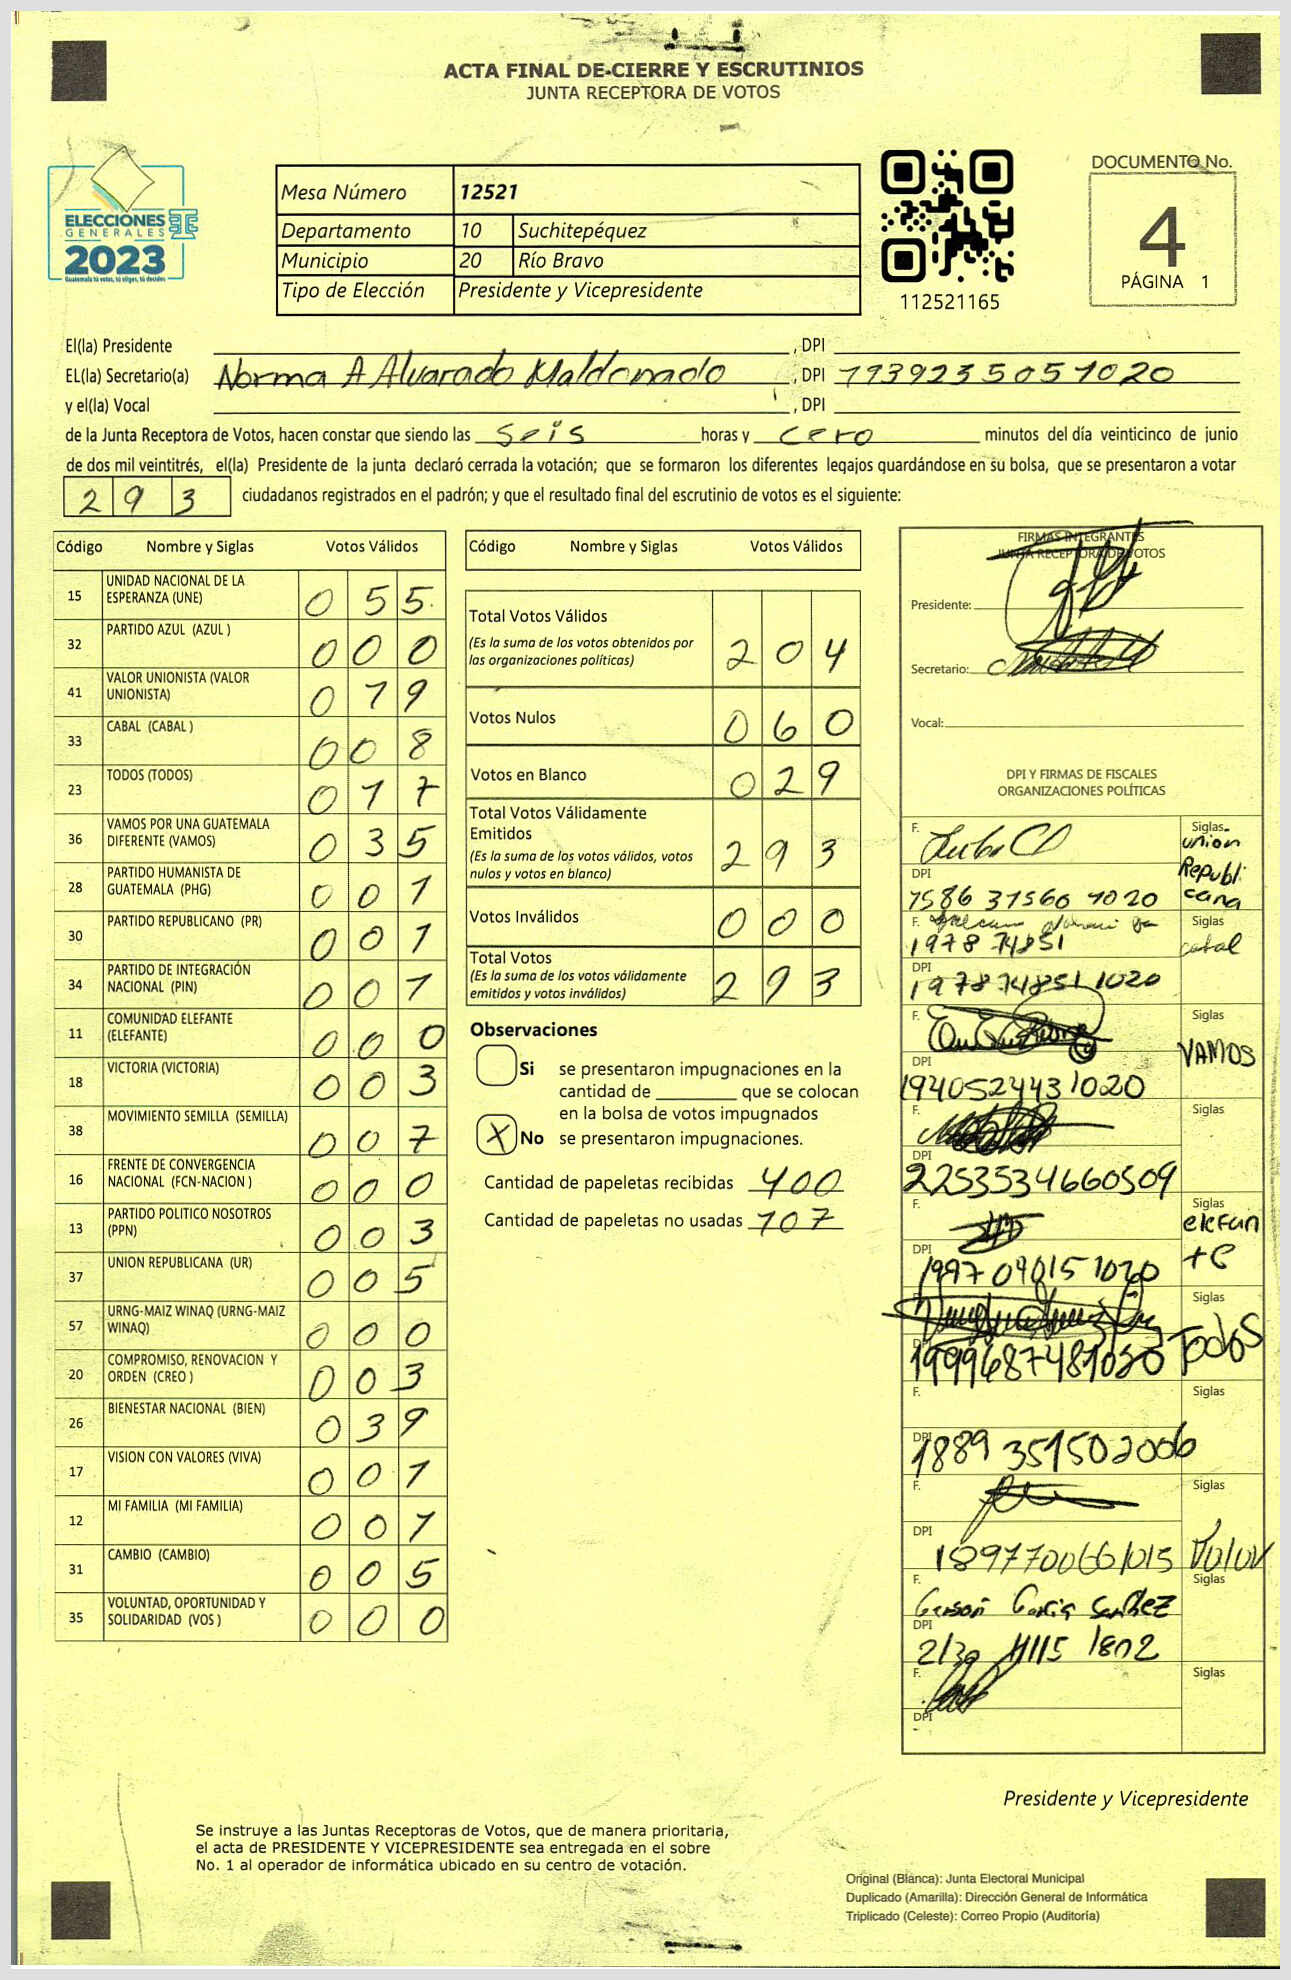 ACTA FINAL DE CIERRE Y ESCRUTINIOS
JUNTA RECEPTORA DE VOTOS
ELECCIONES
GENERALES
2023
Guatemala tú votas, tú eliges, tú decides
Mesa Número 12521
Departamento 10 Suchitepéquez
Municipio 20 Río Bravo
Tipo de Elección Presidente y Vicepresidente
112521165
DOCUMENTO No.
4
PÁGINA 1
El(la) Presidente , DPI
EL(la) Secretario(a) Norma A Alvarado Maldonado , DPI 1939235051020
y el(la) Vocal , DPI
de la Junta Receptora de Votos, hacen constar que siendo las seis horas y cero minutos del día veinticinco de junio
de dos mil veintitrés, el(la) Presidente de la junta declaró cerrada la votación; que se formaron los diferentes legajos guardándose en su bolsa, que se presentaron a votar
293 ciudadanos registrados en el padrón; y que el resultado final del escrutinio de votos es el siguiente:
Código Nombre y Siglas Votos Válidos
15 UNIDAD NACIONAL DE LA ESPERANZA (UNE) 055
32 PARTIDO AZUL (AZUL ) 000
41 VALOR UNIONISTA (VALOR UNIONISTA) 079
33 CABAL (CABAL ) 008
23 TODOS (TODOS) 017
36 VAMOS POR UNA GUATEMALA DIFERENTE (VAMOS) 035
28 PARTIDO HUMANISTA DE GUATEMALA (PHG) 001
30 PARTIDO REPUBLICANO (PR) 001
34 PARTIDO DE INTEGRACIÓN NACIONAL (PIN) 001
11 COMUNIDAD ELEFANTE (ELEFANTE) 000
18 VICTORIA (VICTORIA) 003
38 MOVIMIENTO SEMILLA (SEMILLA) 007
16 FRENTE DE CONVERGENCIA NACIONAL (FCN-NACION ) 000
13 PARTIDO POLITICO NOSOTROS (PPN) 003
37 UNION REPUBLICANA (UR) 005
57 URNG-MAIZ WINAQ (URNG-MAIZ WINAQ) 000
20 COMPROMISO, RENOVACION Y ORDEN (CREO ) 003
26 BIENESTAR NACIONAL (BIEN) 039
17 VISION CON VALORES (VIVA) 001
12 MI FAMILIA (MI FAMILIA) 001
31 CAMBIO (CAMBIO) 005
35 VOLUNTAD, OPORTUNIDAD Y SOLIDARIDAD (VOS ) 000
Código Nombre y Siglas Votos Válidos
Total Votos Válidos 204
(Es la suma de los votos obtenidos por
las organizaciones políticas)
Votos Nulos 060
Votos en Blanco 029
Total Votos Válidamente
Emitidos 293
(Es la suma de los votos válidos, votos
nulos y votos en blanco)
Votos Inválidos 000
Total Votos 293
(Es la suma de los votos válidamente
emitidos y votos inválidos)
Observaciones
Si se presentaron impugnaciones en la
cantidad de ________ que se colocan
en la bolsa de votos impugnados
X No se presentaron impugnaciones.
Cantidad de papeletas recibidas 400
Cantidad de papeletas no usadas 107
FIRMAS INTEGRANTES
JUNTA RECEPTORA DE VOTOS
Presidente:
Secretario:
Vocal:
DPI Y FIRMAS DE FISCALES
ORGANIZACIONES POLÍTICAS
F. Siglas union Republicana
DPI 1586 37560 1020
F. Siglas cabal
1978 74851
DPI 1978 74851 1020
F. Siglas VAMOS
DPI 1940524431020
F. Siglas
DPI 2253534660509
F. Siglas elefante
DPI 1997040151020
F. Siglas Todos
DPI 1999687481020
F. Siglas
DPI 1889351502006
F. Siglas
DPI 1897700661015
F. Gerson García Sanchez Siglas
DPI
F. Siglas
DPI
Presidente y Vicepresidente
Se instruye a las Juntas Receptoras de Votos, que de manera prioritaria,
el acta de PRESIDENTE Y VICEPRESIDENTE sea entregada en el sobre
No. 1 al operador de informática ubicado en su centro de votación.
Original (Blanca): Junta Electoral Municipal
Duplicado (Amarilla): Dirección General de Informática
Triplicado (Celeste): Correo Propio (Auditoría)